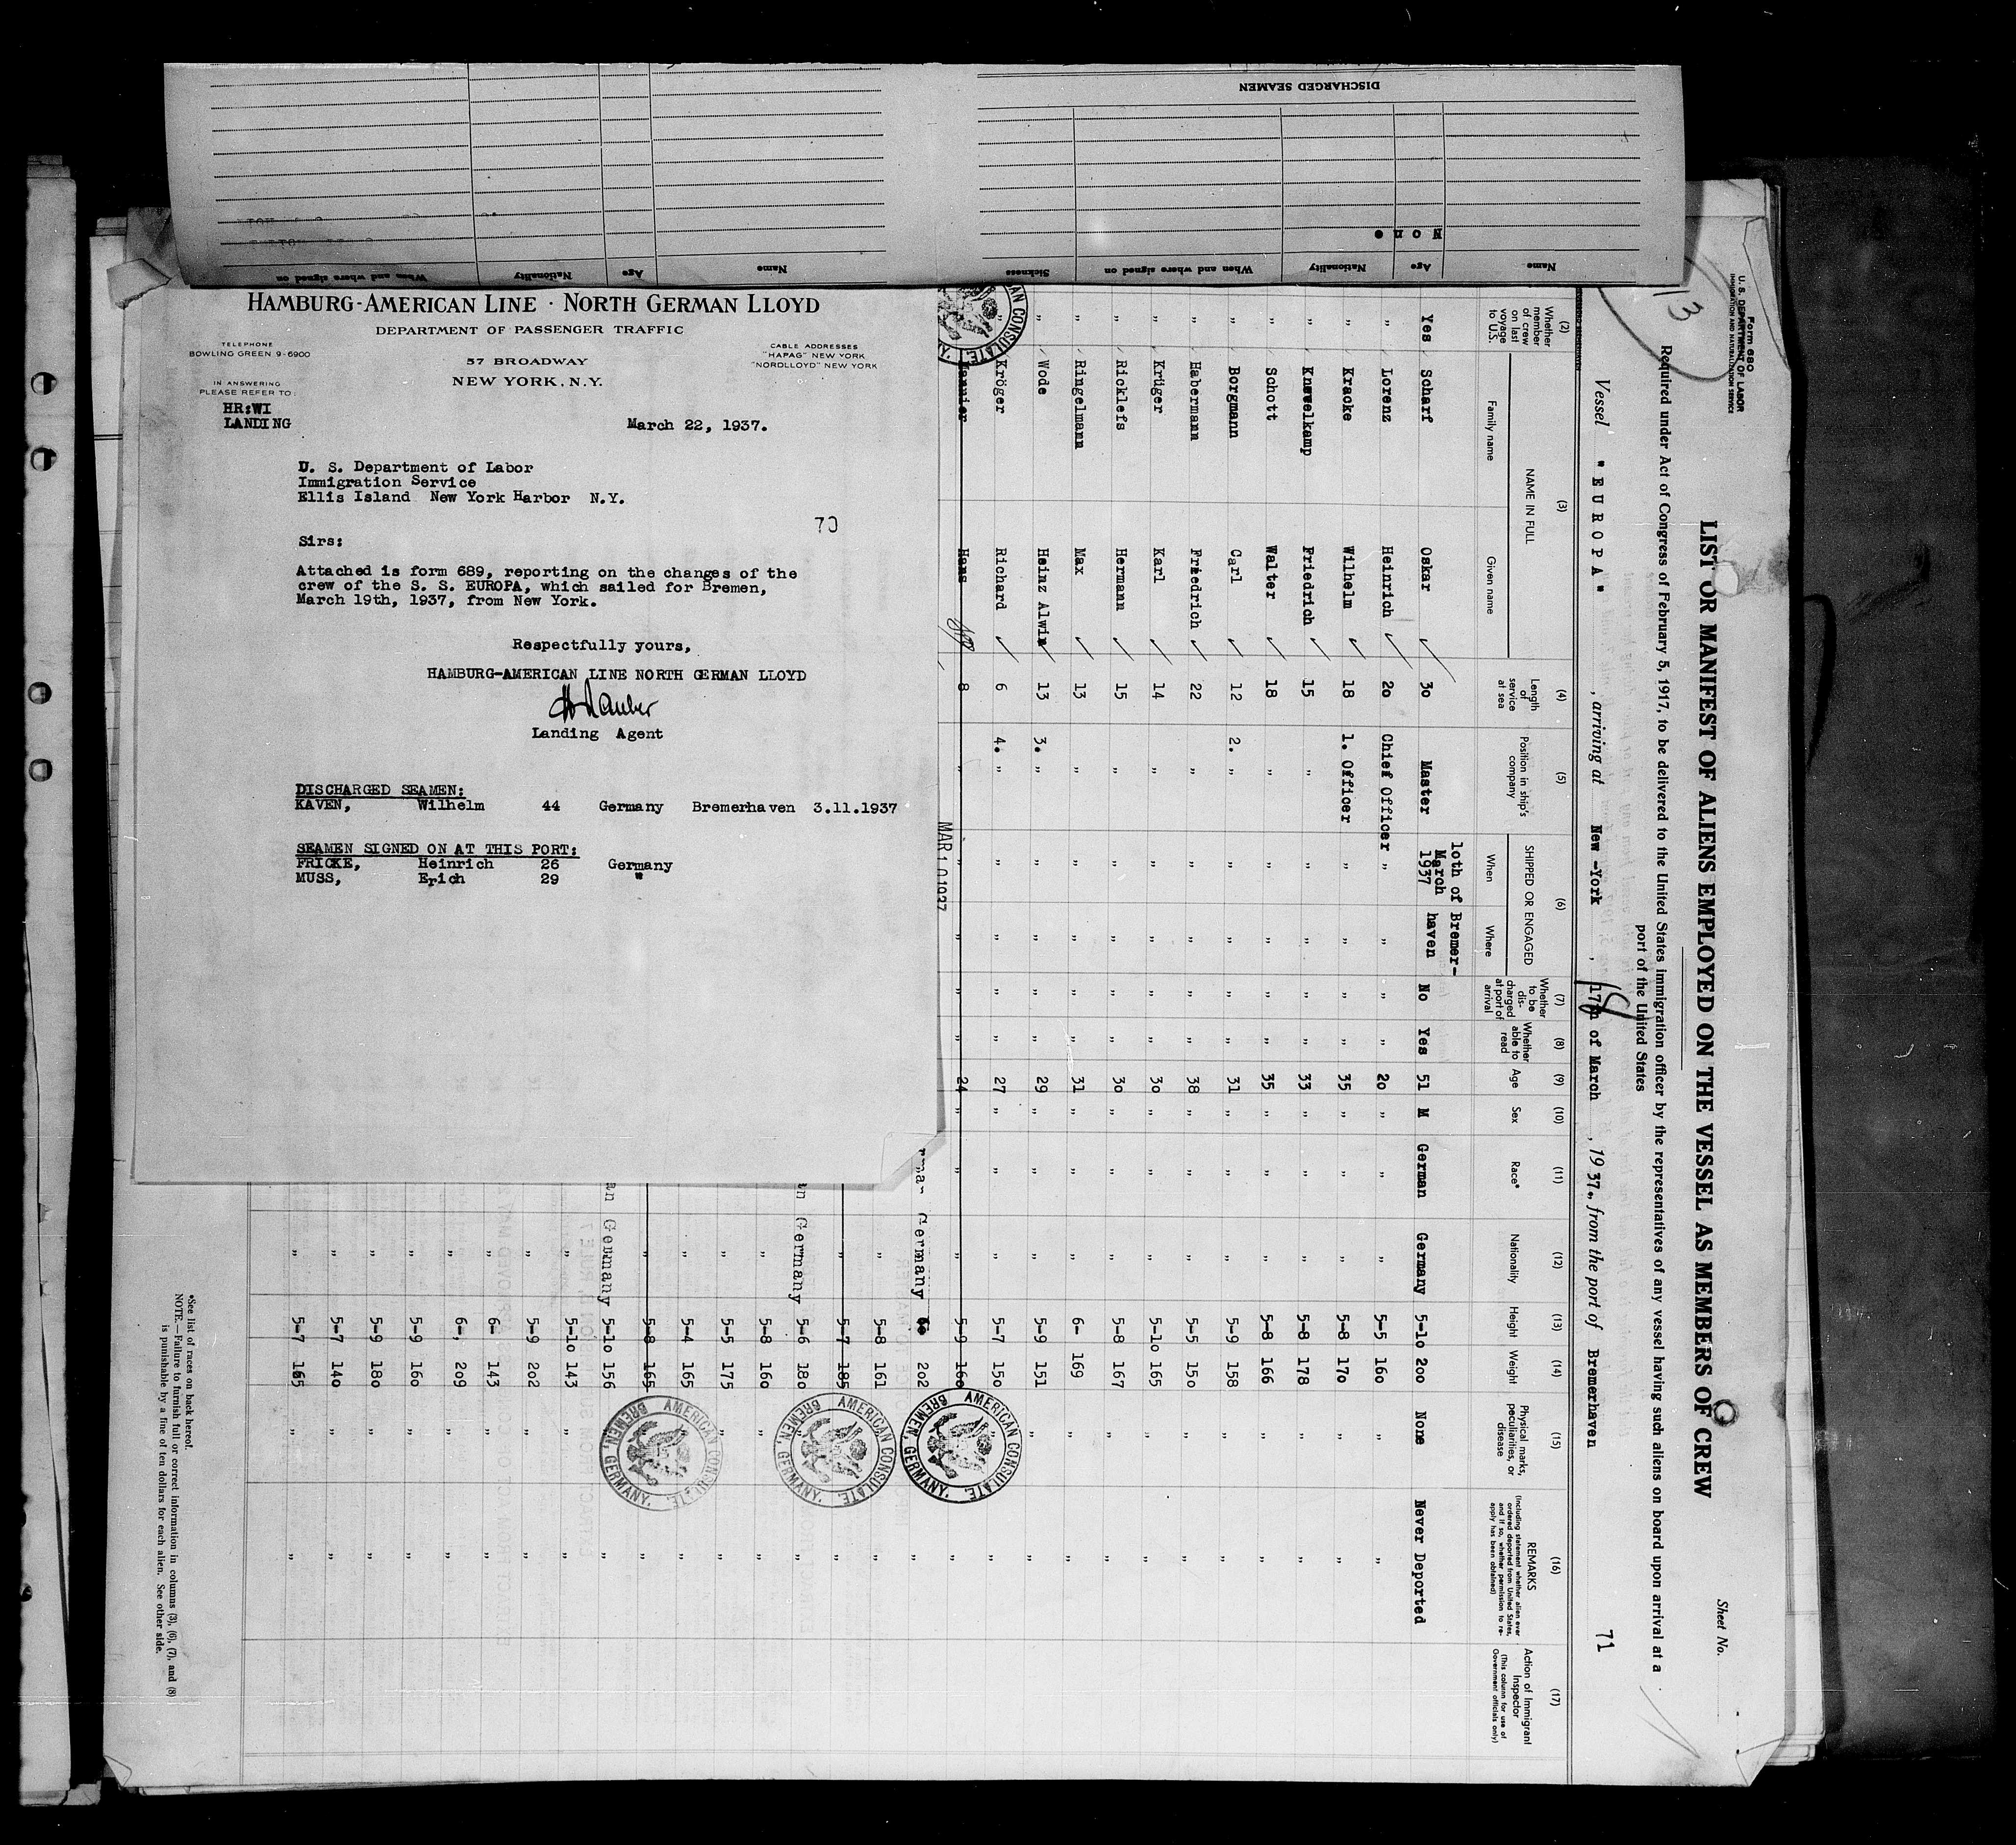 DISCHARGED SEAMEN
None
Name Age Nationality When and where signed on Sickness
Name Age Nationality When and where signed on
HAMBURG-AMERICAN LINE · NORTH GERMAN LLOYD
DEPARTMENT OF PASSENGER TRAFFIC
TELEPHONE
BOWLING GREEN 9-6900
57 BROADWAY
NEW YORK, N.Y.
CABLE ADDRESSES
"HAPAG" NEW YORK
"NORDLLOYD" NEW YORK
IN ANSWERING
PLEASE REFER TO:
HR:WI
LANDING
March 22, 1937.
U. S. Department of Labor
Immigration Service
Ellis Island New York Harbor N.Y.
70
Sirs:
Attached is form 689, reporting on the changes of the
crew of the S. S. EUROPA, which sailed for Bremen,
March 19th, 1937, from New York.
Respectfully yours,
HAMBURG-AMERICAN LINE NORTH GERMAN LLOYD
Landing Agent
DISCHARGED SEAMEN:
KAVEN, Wilhelm 44 Germany Bremerhaven 3.11.1937
SEAMEN SIGNED ON AT THIS PORT:
FRICKE, Heinrich 26 Germany
MUSS, Erich 29 "
Form 680
U. S. DEPARTMENT OF LABOR
IMMIGRATION AND NATURALIZATION SERVICE
13
Sheet No.
LIST OR MANIFEST OF ALIENS EMPLOYED ON THE VESSEL AS MEMBERS OF CREW
Required under Act of Congress of February 5, 1917, to be delivered to the United States immigration officer by the representatives of any vessel having such aliens on board upon arrival at a
port of the United States
Vessel "EUROPA", arriving at New-York, 17th 18 of March, 1937., from the port of Bremerhaven
71
(2) (3) (4) (5) (6) (7) (8) (9) (10) (11) (12) (13) (14) (15) (16) (17)
Whether member of crew on last voyage to U.S.
NAME IN FULL
Family name Given name
Length of service at sea
Position in ship's company
SHIPPED OR ENGAGED
When Where
Whether to be discharged at port of arrival
Whether able to read
Age
Sex
Race*
Nationality
Height
Weight
Physical marks, peculiarities, or disease
REMARKS
(Including statement whether alien ever ordered deported from United States, and if so, whether permission to reapply has been obtained)
Action of Immigrant Inspector
(This column for use of Government officials only)
10th of Bremer-
March haven
1937
Yes Scharf Oskar 30 Master No Yes 51 M German Germany 5-10 200 None Never Deported
" Lorenz Heinrich 20 Chief Officer " " " " 20 " " " 5-5 160 " "
" Kracke Wilhelm 18 1. Officer " " " " 35 " " " 5-8 170 " "
" Knevelkamp Friedrich 15 " " " " " 33 " " " 5-8 178 " "
" Schott Walter 18 " " " " " 35 " " " 5-8 166 " "
" Borgmann Carl 12 2. " " " " " 31 " " " 5-9 158 " "
" Habermann Friedrich 22 " " " " " 38 " " " 5-5 150 " "
" Krüger Karl 14 " " " " " 30 " " " 5-10 165 " "
" Ricklefs Hermann 15 " " " " " 30 " " " 5-8 167 " "
" Ringelmann Max 13 " " " " " 31 " " " 6- 169 " "
" Wode Heinz Alwin 13 3. " " " " " 29 " " " 5-9 151 " "
" Kröger Richard 6 4. " " " " " 27 " " " 5-7 150 " "
Hans 8 " " " " " 24 " " " 5-9 160 "
MAR 10 1937
Germany 202 "
" 5-8 161 " "
" 5-7 185 "
an Germany 5-6 180 "
" 5-8 160 "
" 5-5 175 " "
" 5-4 165 "
" 5-8 165 "
an Germany 5-10 156 "
" 5-10 143 " "
" 5-9 202 " "
" 6- 143 " "
" 6-, 209 " "
" 5-9 160 " "
" 5-9 180 " "
" 5-7 140 " "
" 5-7 165 " "
AMERICAN CONSULATE.
BREMEN, GERMANY.
AMERICAN CONSULATE.
BREMEN, GERMANY.
AMERICAN CONSULATE.
BREMEN, GERMANY.
AN CONSULATE.
*See list of races on back hereof.
NOTE.—Failure to furnish full or correct information in columns (3), (6), (7), and (8)
is punishable by a fine of ten dollars for each alien. See other side.